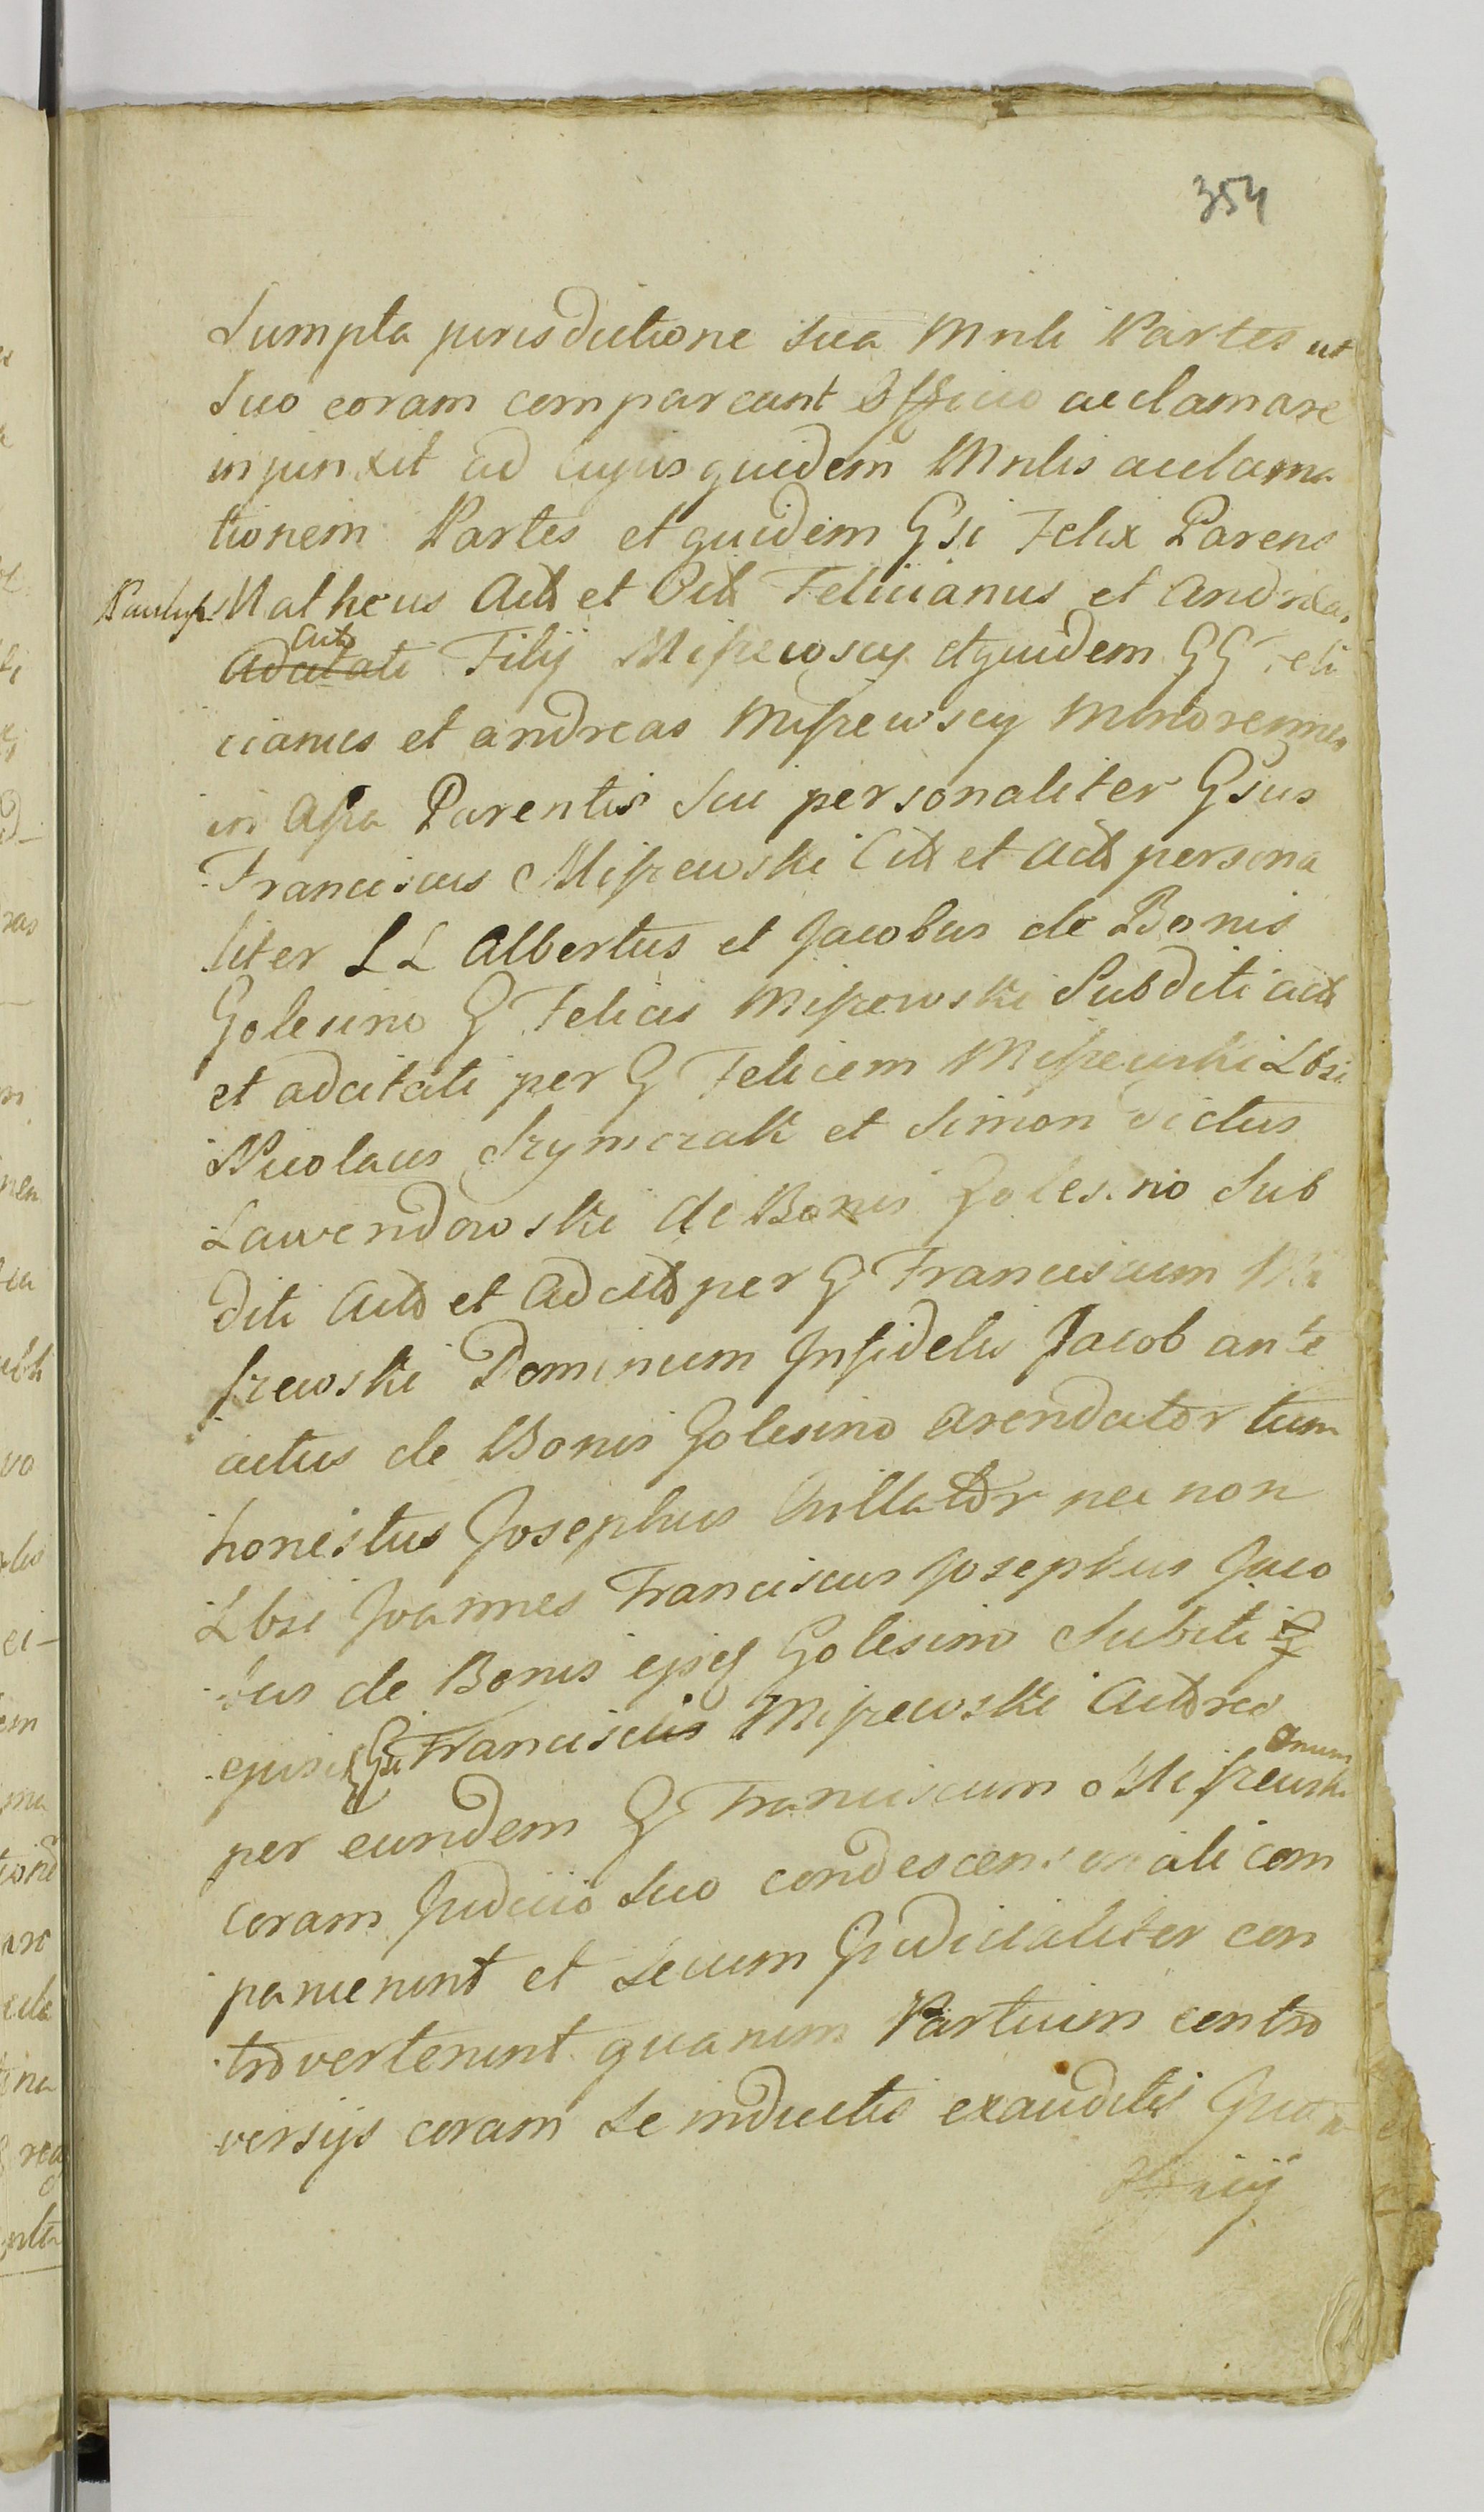 354
Sumpta jurisdictione sua Mnli Partes ut
Suo coram compareant Officio acclamare
injunxit ad cujus quidem Mnlis acclama
tionem Partes et quidem Gsi Felix Parens
Paulus Matheus Actt et Citt Felicianus et Andreas
Actt
Adcitati Filij Miszewscy et quidem GG Feli
cianus et Andreas Miszewscy Minorennes
in assa Parentis sui personaliter Gsus
Franciscus Miszewski Citt et Actt persona
liter LL Albertus et Jacobus de Bonis
Golesino G Felicis Miszewski Subditi actt
et adcitati per G Felicem Miszewski Lbsi
Nicolaus Szymczak et Simon dictus
Lawendowski de Bonis Golesino Sub
diti Actt et Adcitt per G Franciscum Mi
szewski Dominum Infidelis Jacob ante
actus de Bonis Golesino arendator tum
honestus Josephus Villator nec non
Lbsi Joannes Franciscus Josephus Jaco
bus de Bonis ejusq Golesino Subditi G
ejusd Gsi Franciscus Miszewski Actoreo
per eundem G Franciscum Miszewski
anum
coram Judicio suo condescensionali com
paruerunt et secum Judicialiter con
troverterunt quarum Partium contro
versijs coram se inductis exauditis